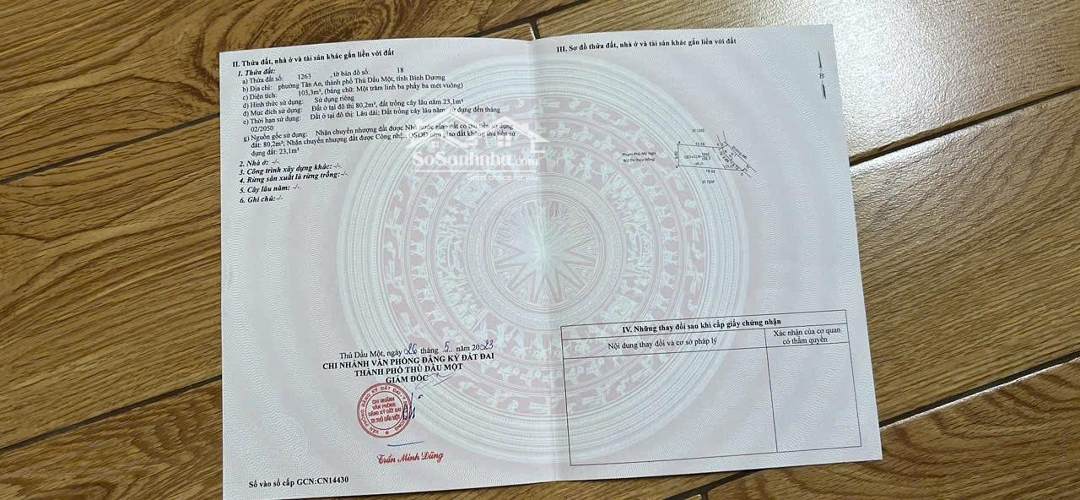 II. Thửa đất, nhà ở và tài sản khác gắn liền với đất
1. Thửa đất:
a) Thửa đất số: 1263 , tờ bản đồ số: 18
b) Địa chỉ: phường Tân An, thành phố Thủ Dầu Một, tỉnh Bình Dương
c) Diện tích: 103,3m², (bằng chữ: Một trăm linh ba phẩy ba mét vuông)
d) Hình thức sử dụng: Sử dụng riêng
đ) Mục đích sử dụng: Đất ở tại đô thị 80,2m², đất trồng cây lâu năm 23,1m²
e) Thời hạn sử dụng: Đất ở tại đô thị: Lâu dài; Đất trồng cây lâu năm: sử dụng đến tháng
02/2050
g) Nguồn gốc sử dụng: Nhận chuyển nhượng đất được Nhà nước giao đất có thu tiền sử dụng
đất: 80,2m²; Nhận chuyển nhượng đất được Công nhận QSDĐ như giao đất không thu tiền sử
dụng đất: 23,1m²
2. Nhà ở: -/-
3. Công trình xây dựng khác: -/-
4. Rừng sản xuất là rừng trồng:-/-
5. Cây lâu năm: -/-
6. Ghi chú:-/-
SoSanhnha.com
Thủ Dầu Một, ngày 26 tháng 5 năm 2023
CHI NHÁNH VĂN PHÒNG ĐĂNG KÝ ĐẤT ĐAI
THÀNH PHỐ THỦ DẦU MỘT
GIÁM ĐỐC
CHI NHÁNH
VĂN PHÒNG
ĐĂNG KÝ ĐẤT ĐAI
TP.THỦ DẦU MỘT
Trần Minh Dũng
Số vào sổ cấp GCN:CN14430
III. Sơ đồ thửa đất, nhà ở và tài sản khác gắn liền với đất
B
IV. Những thay đổi sau khi cấp giấy chứng nhận
Nội dung thay đổi và cơ sở pháp lý
Xác nhận của cơ quan
có thẩm quyền